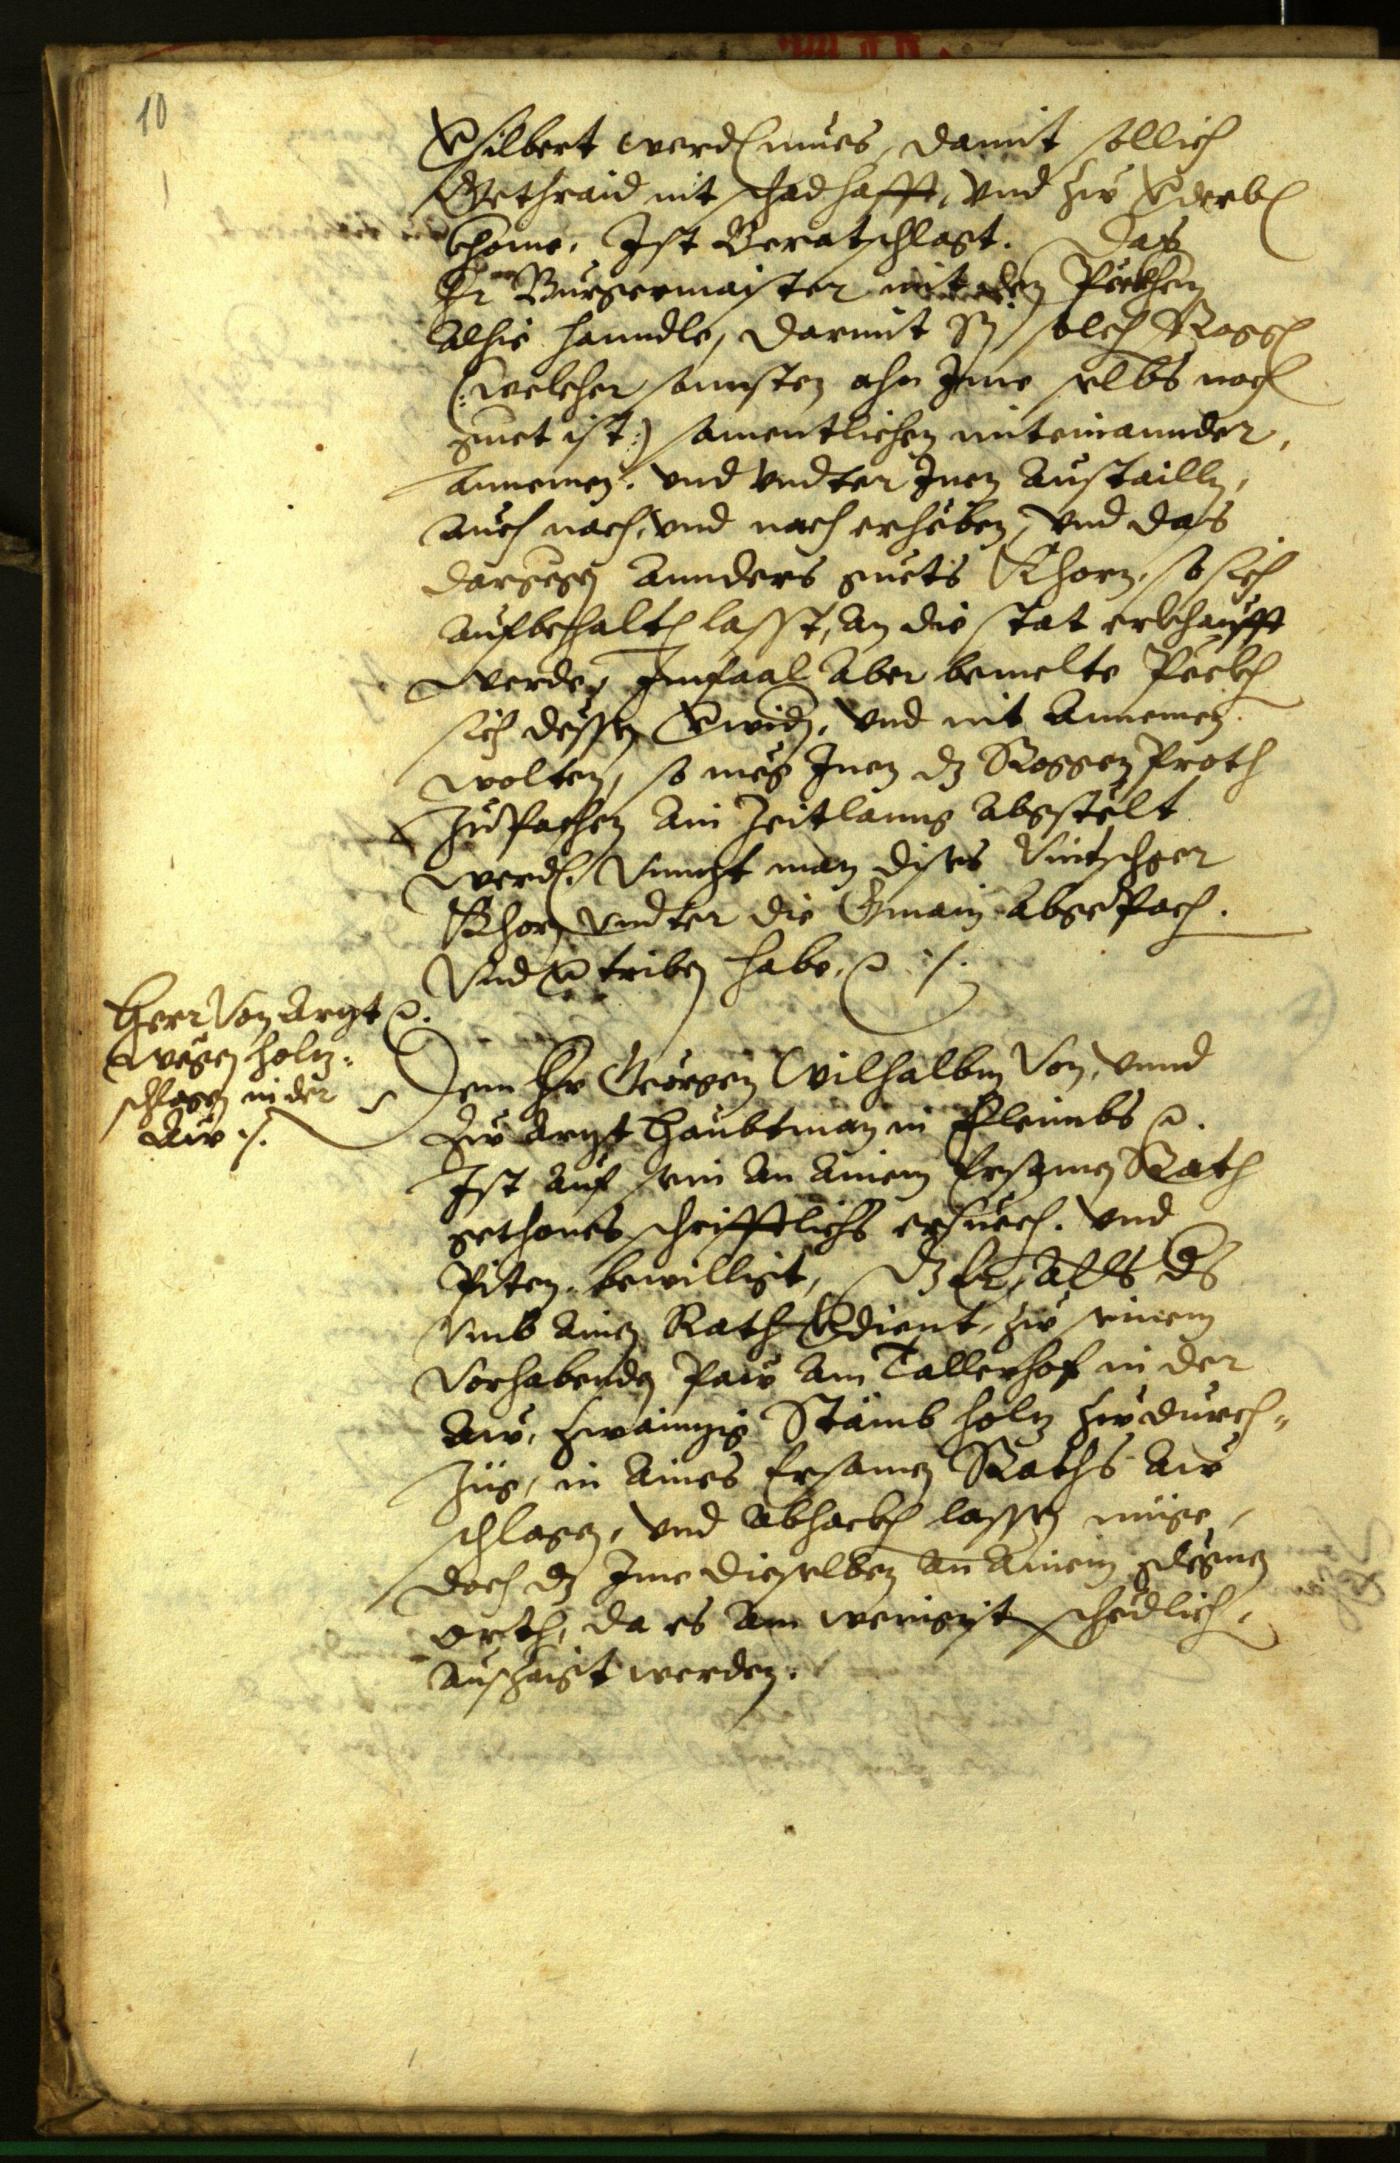 10
Versilbert werden mues, damit sollich
Gethraid nit schadhafft, vnd zw verderben
khome. Ist Beratschlagt. Das
Hr Burgermaister mit den Peckhen
alhie hanndle, darmit Sy solch Roggen
(: welcher sonnsten ahn Ime selbs noch
guet ist :) samentlichen miteinannder,
Annemen. vnd vndter Inen austailln,
auch nach, vnd nach erheben, vnd das
dargegen annders guets Khorn, so sich
aufbehalten lasst, an die stat erkhaufft
werde, Imfaal Aber bemelte Peckhen
sich dessen verwidern, vnd nit Annemen
wolten, so mues Inen dz Roggen Proth
zu Pachen ain Zeitlanng abgestelt
werden. Vnnczt man dises Vintschger
Khorn vndter die Gmain abgePachen.
Vnd vertriben habe. ./.
Herr Von Arzt
wegen holz-
schlagen in der
Aw ./.
Dem Hr Georgen Wilhalbm Von, vnnd
zw Arzt Haubtman in Fleimbs
Ist auf sein an ainem Ersamen Rath
gethones schrifftlichs ersuech. vnd
Piten, bewilligt, dz Er, Alls der es
vmb ainen Rath verdient, zw seinem
vorhabenden Paw am Tallerhof in der
Aw, zwainzig Stämb holz zw durch-
züg, in aines Ersamen Raths Aw
schlagen, vnd abhackhen lassen müge,
doch dz Ime dieselben an ainem glegnen
orth, da es am wenigist schedlich,
auszaigt werden.